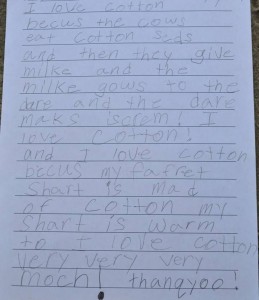 I love cotton
becus the cows
eat cotton seds
and then they give
milke and the
millke gows to the
dare and the dare
maks iscrem! I
love cotton!
and I love cotton
becus my fafret
Shart is mad
of cotton my
Shart is warm
to I love cotton
very very very
moch! thanqyoo!